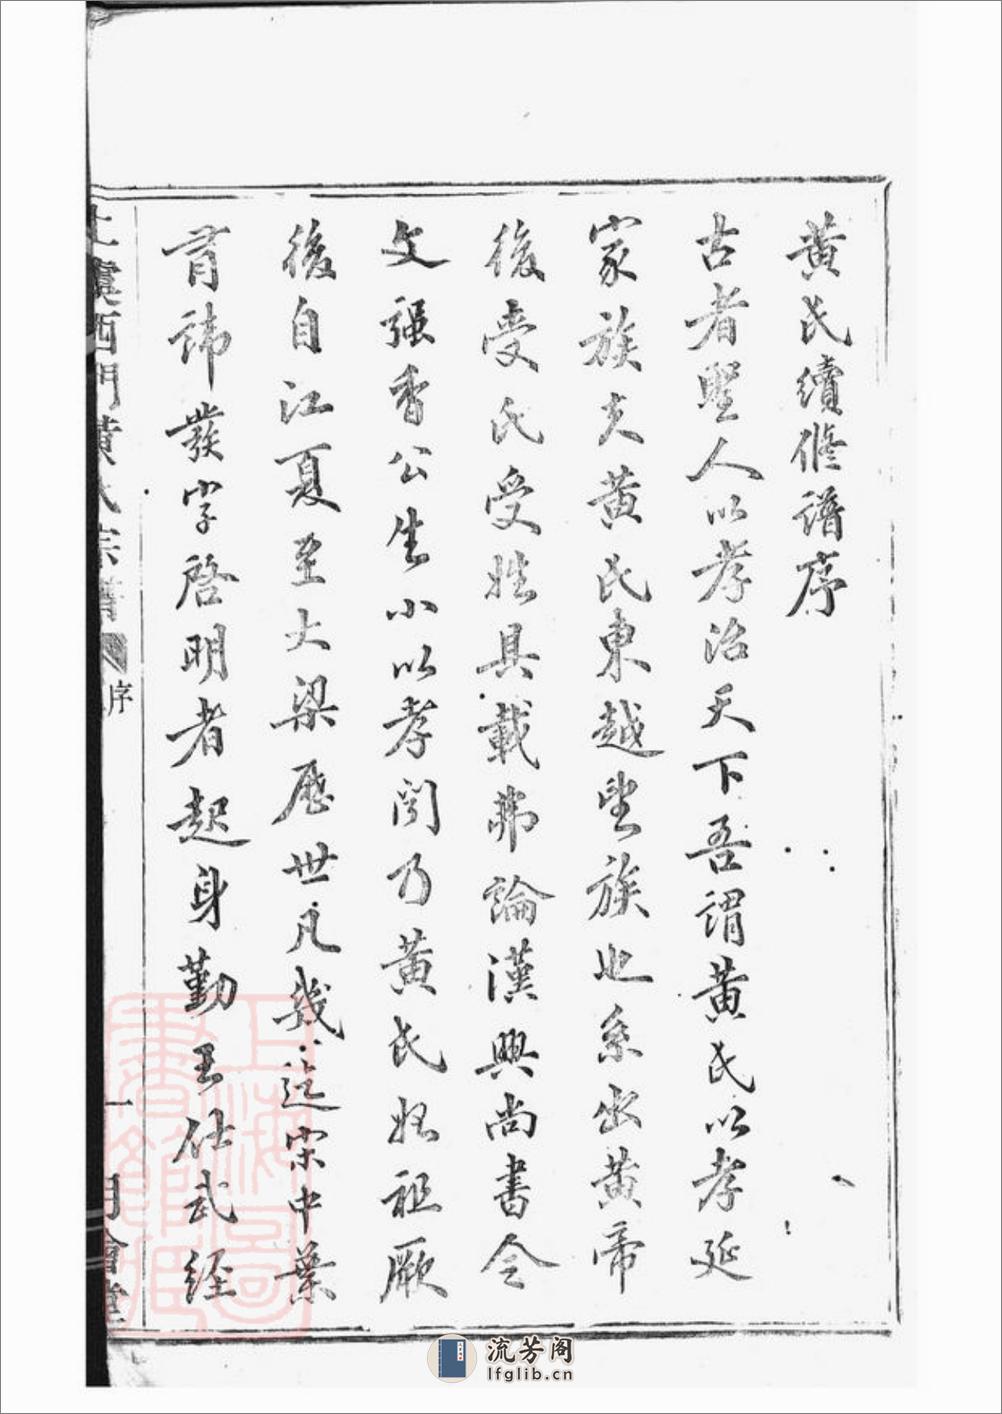 黃氏續修譜序
古者聖人以孝治天下吾謂黃氏以孝延
家族夫黃氏東越望族也系出黃帝
後受氏受姓具載弗論漢興尚書令
文強香公生小以孝聞乃黃氏始祖厥
後自江夏至大梁歷世凡幾迄宋中葉
有諱發字啓明者起身勤王仕武經
上虞西門黃氏宗譜
序
一
上海圖書館藏
流芳阁
lfglib.cn